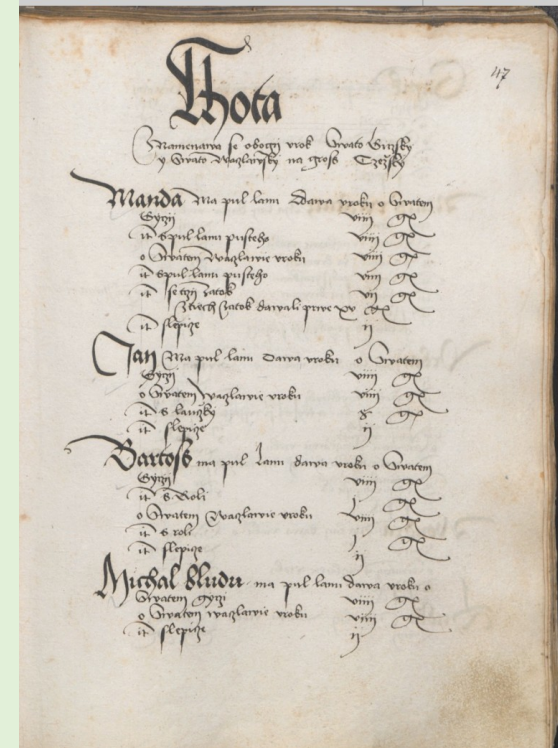 47
Lhota
Namenawa se obogy urok Swato Girzsky
y Swato Waczlawsky na gross Czesky
Manda Ma pul lanu dawa uroku o Swatem
Gyrzij viiij gr
it s pul lanu pusteho viiij gr
o Swatem Waczlawie uroku viiij gr
it s pul lanu pusteho viiij gr
it zatok vij gr
zatok dawali prwe xv gr
it slepize ij
Jan Ma pul lanu dawa uroku o Swatem
Gyrzij viiij gr
o Swatem Waczlawie uroku viiij gr
it s lauzky g gr
it slepize ij
Bartoss ma pul lanu dawa uroku o Swatem
Gyrzij viiij gr
it s Roli j gr
o Swatem Waczlawie uroku viiij gr
it s roli j gr
it slepize ij
Michal bludu ma pul lanu dawa uroku o
Swatem gyrzi viiij gr
o Swatem waczlawie uroku viiij gr
it slepize ij